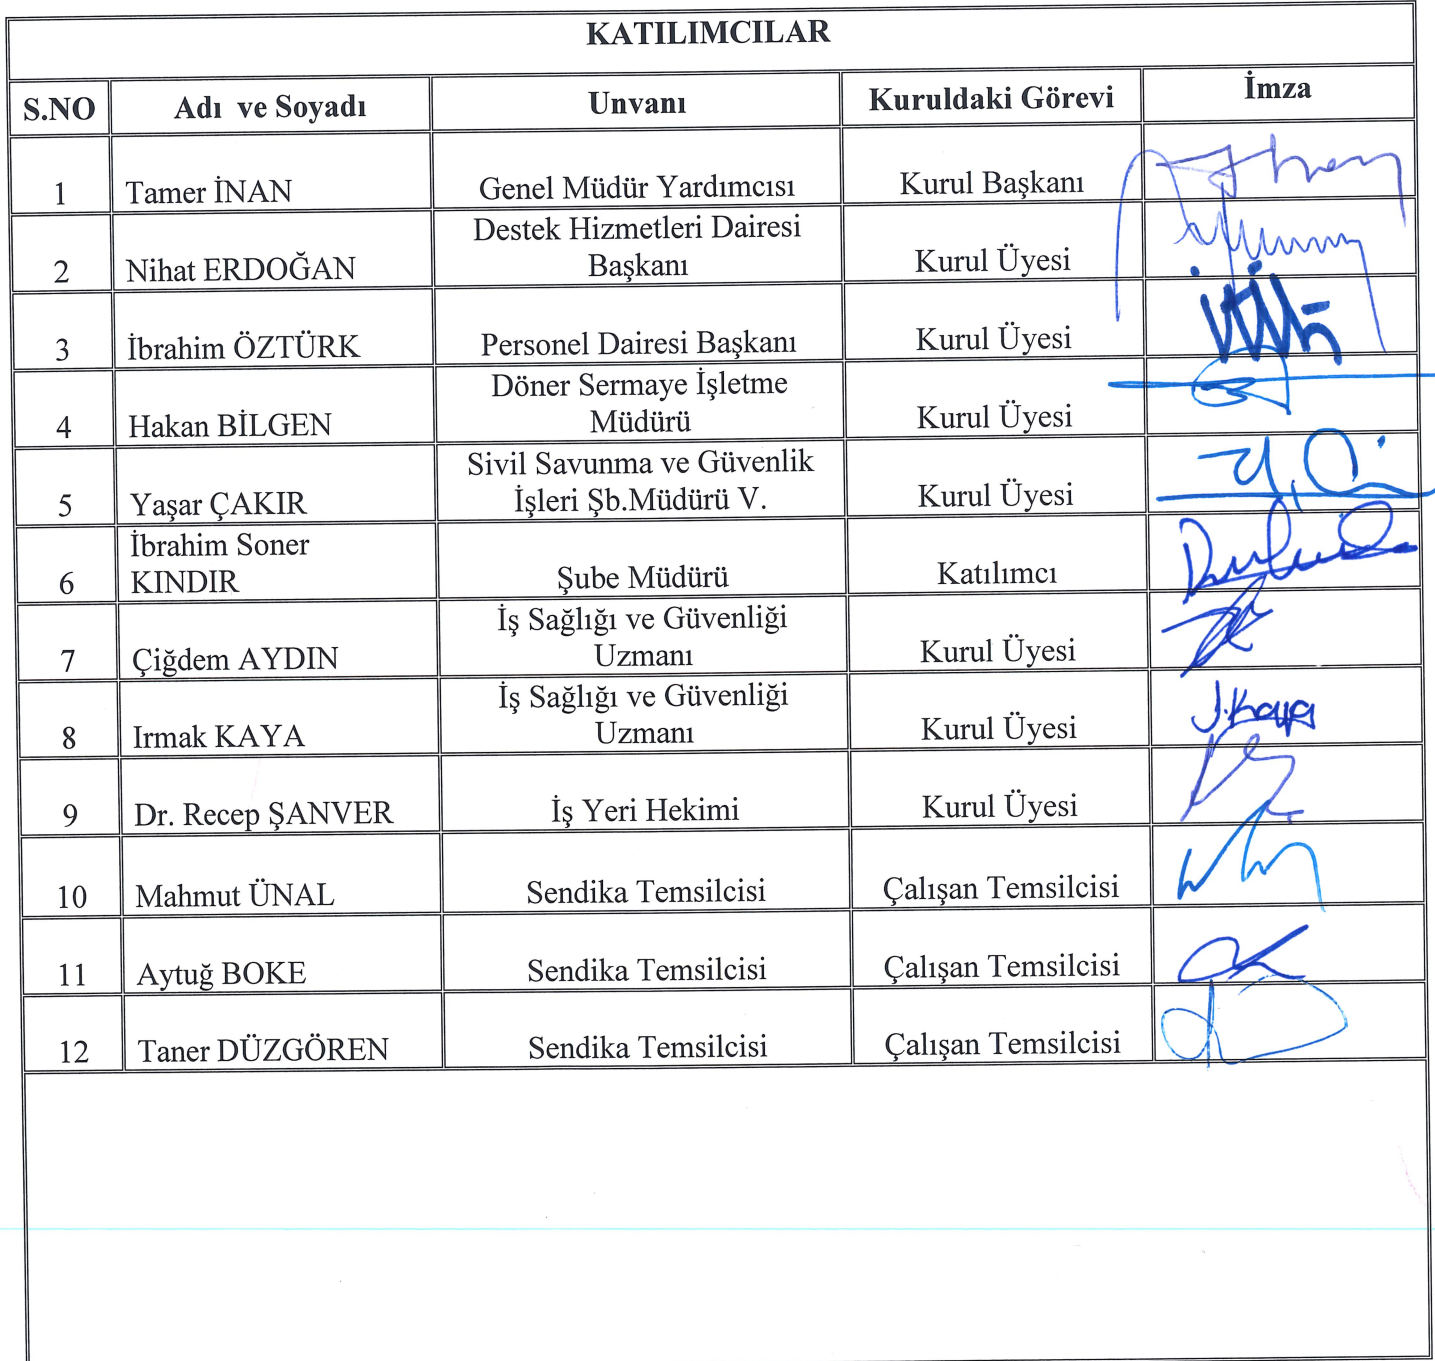 KATILIMCILAR
S.NO Adı ve Soyadı Unvanı Kuruldaki Görevi İmza
1 Tamer İNAN Genel Müdür Yardımcısı Kurul Başkanı
Destek Hizmetleri Dairesi
2 Nihat ERDOĞAN Başkanı Kurul Üyesi
3 İbrahim ÖZTÜRK Personel Dairesi Başkanı Kurul Üyesi
Döner Sermaye İşletme
4 Hakan BİLGEN Müdürü Kurul Üyesi
Sivil Savunma ve Güvenlik
5 Yaşar ÇAKIR İşleri Şb.Müdürü V. Kurul Üyesi
İbrahim Soner
6 KINDIR Şube Müdürü Katılımcı
İş Sağlığı ve Güvenliği
7 Çiğdem AYDIN Uzmanı Kurul Üyesi
İş Sağlığı ve Güvenliği
8 Irmak KAYA Uzmanı Kurul Üyesi I.Kaya
9 Dr. Recep ŞANVER İş Yeri Hekimi Kurul Üyesi
10 Mahmut ÜNAL Sendika Temsilcisi Çalışan Temsilcisi
11 Aytuğ BOKE Sendika Temsilcisi Çalışan Temsilcisi
12 Taner DÜZGÖREN Sendika Temsilcisi Çalışan Temsilcisi